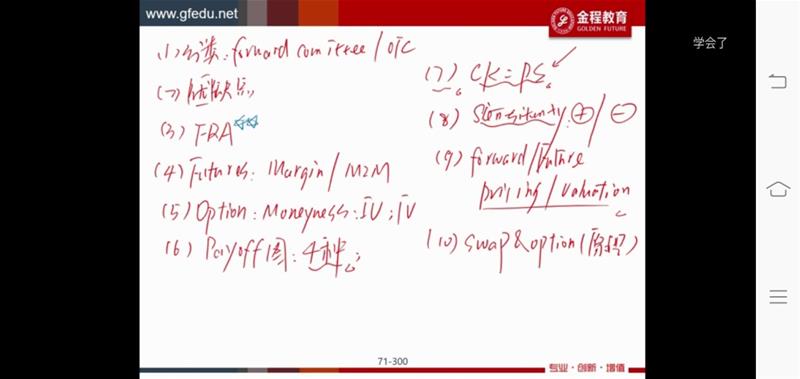 www.gfedu.net
金程教育
GOLDEN FUTURE
学会了
(1) 分类: forward comittee / OTC
(2) 优缺点
(3) FRA
(4) Futures: Margin / M2M
(5) Option: Moneyness: IV; TV
(6) Payoff图: 4种;
(7) CK = PS
(8) Sensitivity: + / -
(9) forward / Future
pricing / Valuation
(10) swap & option (原理)
71-300
专业·创新·增值